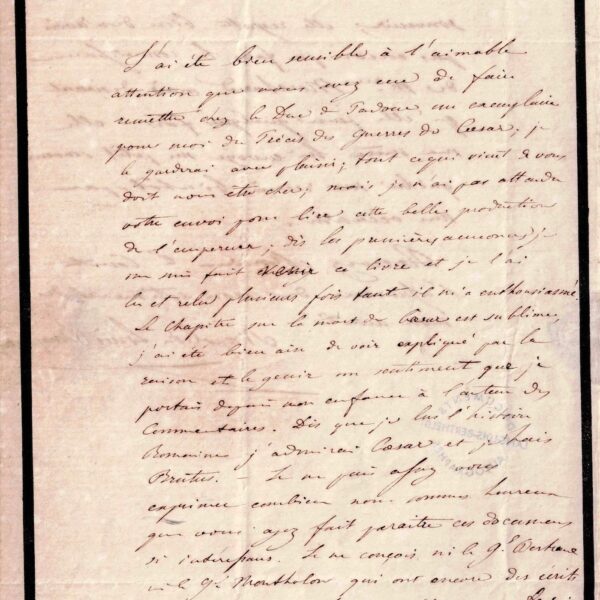 J'ai été bien sensible à l'aimable
attention que vous avez eue de faire
remettre chez le Duc de Padoue un exemplaire
pour moi du Précis des Guerres de Cæsar; je
le garderai avec plaisir; tout ce qui vient de vous
doit nous être cher; mais je n'ai pas attendu
votre envoi pour lire cette belle production
de l'empereur; dès les premières annonces je
me suis fait venir ce livre et je l'ai
lu et relu plusieurs fois tant il m'a enthousiasmé.
Le chapitre sur la mort de Cæsar est sublime
j'ai été bien aise de voir expliqué par la
raison et le génie un sentiment que je
portais depuis mon enfance à l'auteur des
Commentaires. Dès que je lus l'histoire
Romaine j'admirai Cæsar et je haïs
Brutus. — Je ne puis assez vous
exprimer combien nous sommes heureux
que vous ayez fait paraître ces documens
si intéressans. Je ne conçois ni le Gl Bertrand
ni le Gl Montholon qui ont encore des écrits